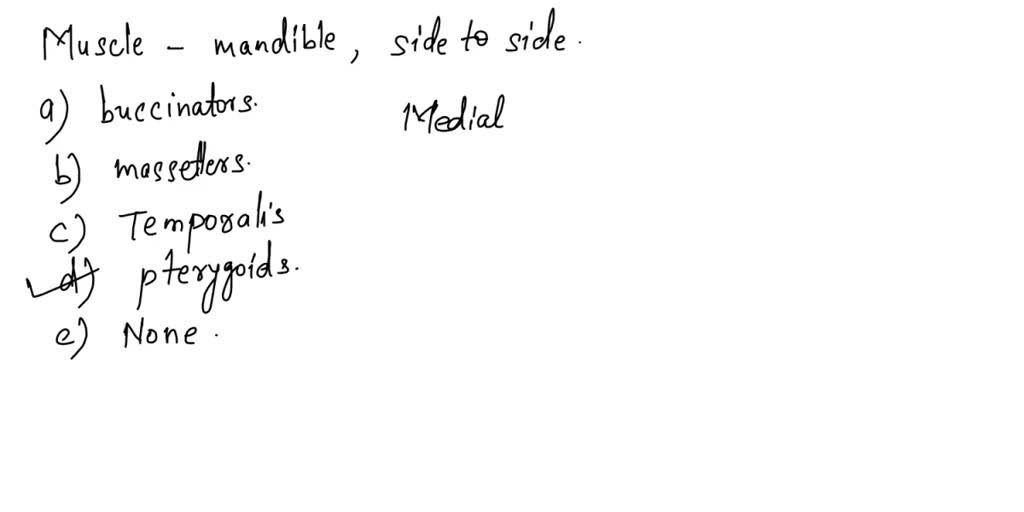 Muscle - mandible, side to side.
a) buccinators.
Medial
b) massetters.
c) Temporalis
d) pterygoids.
e) None.